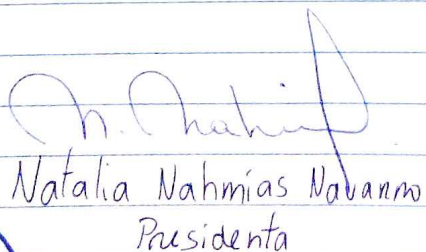 N. Nahmi
Natalia Nahmías Navarro
Presidenta